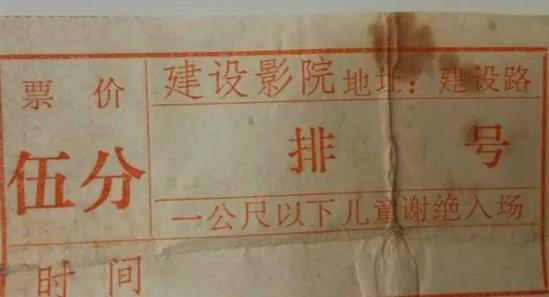 票价
建设影院 地址：建设路
伍分
排 号
一公尺以下儿童谢绝入场
时间